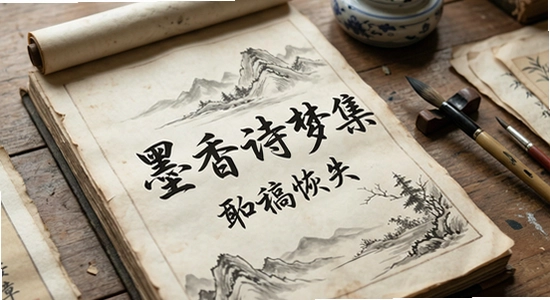 墨香诗梦集
聊稿恢失